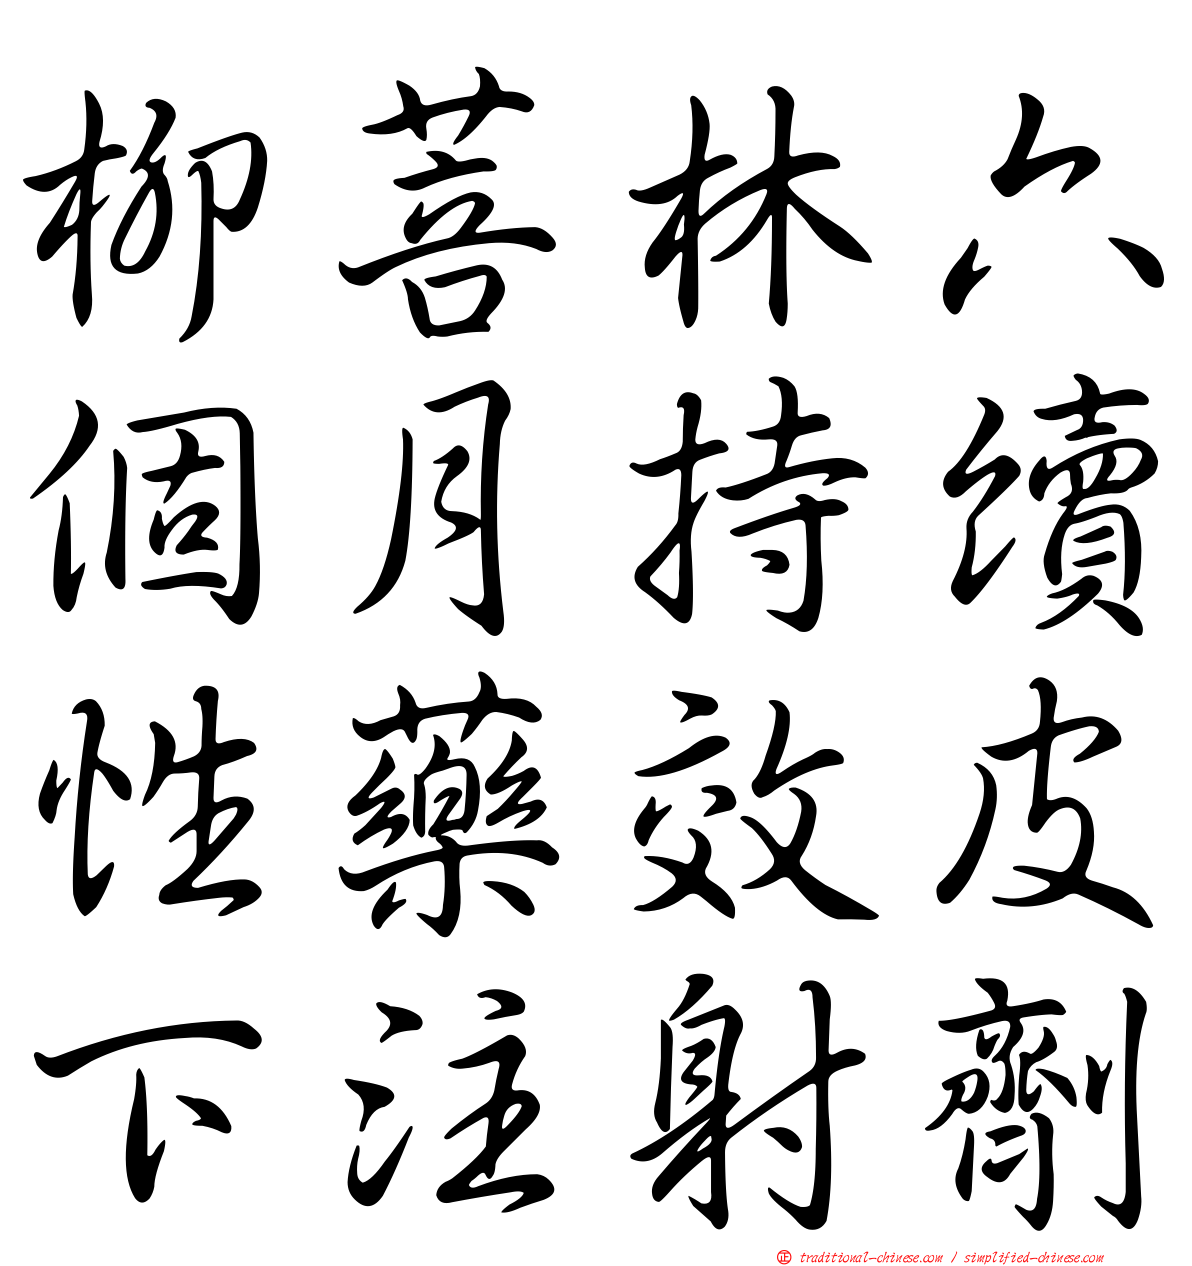 柳菩林六
個月持續
性藥效皮
下注射劑
正 traditional-chinese.com / simplified-chinese.com